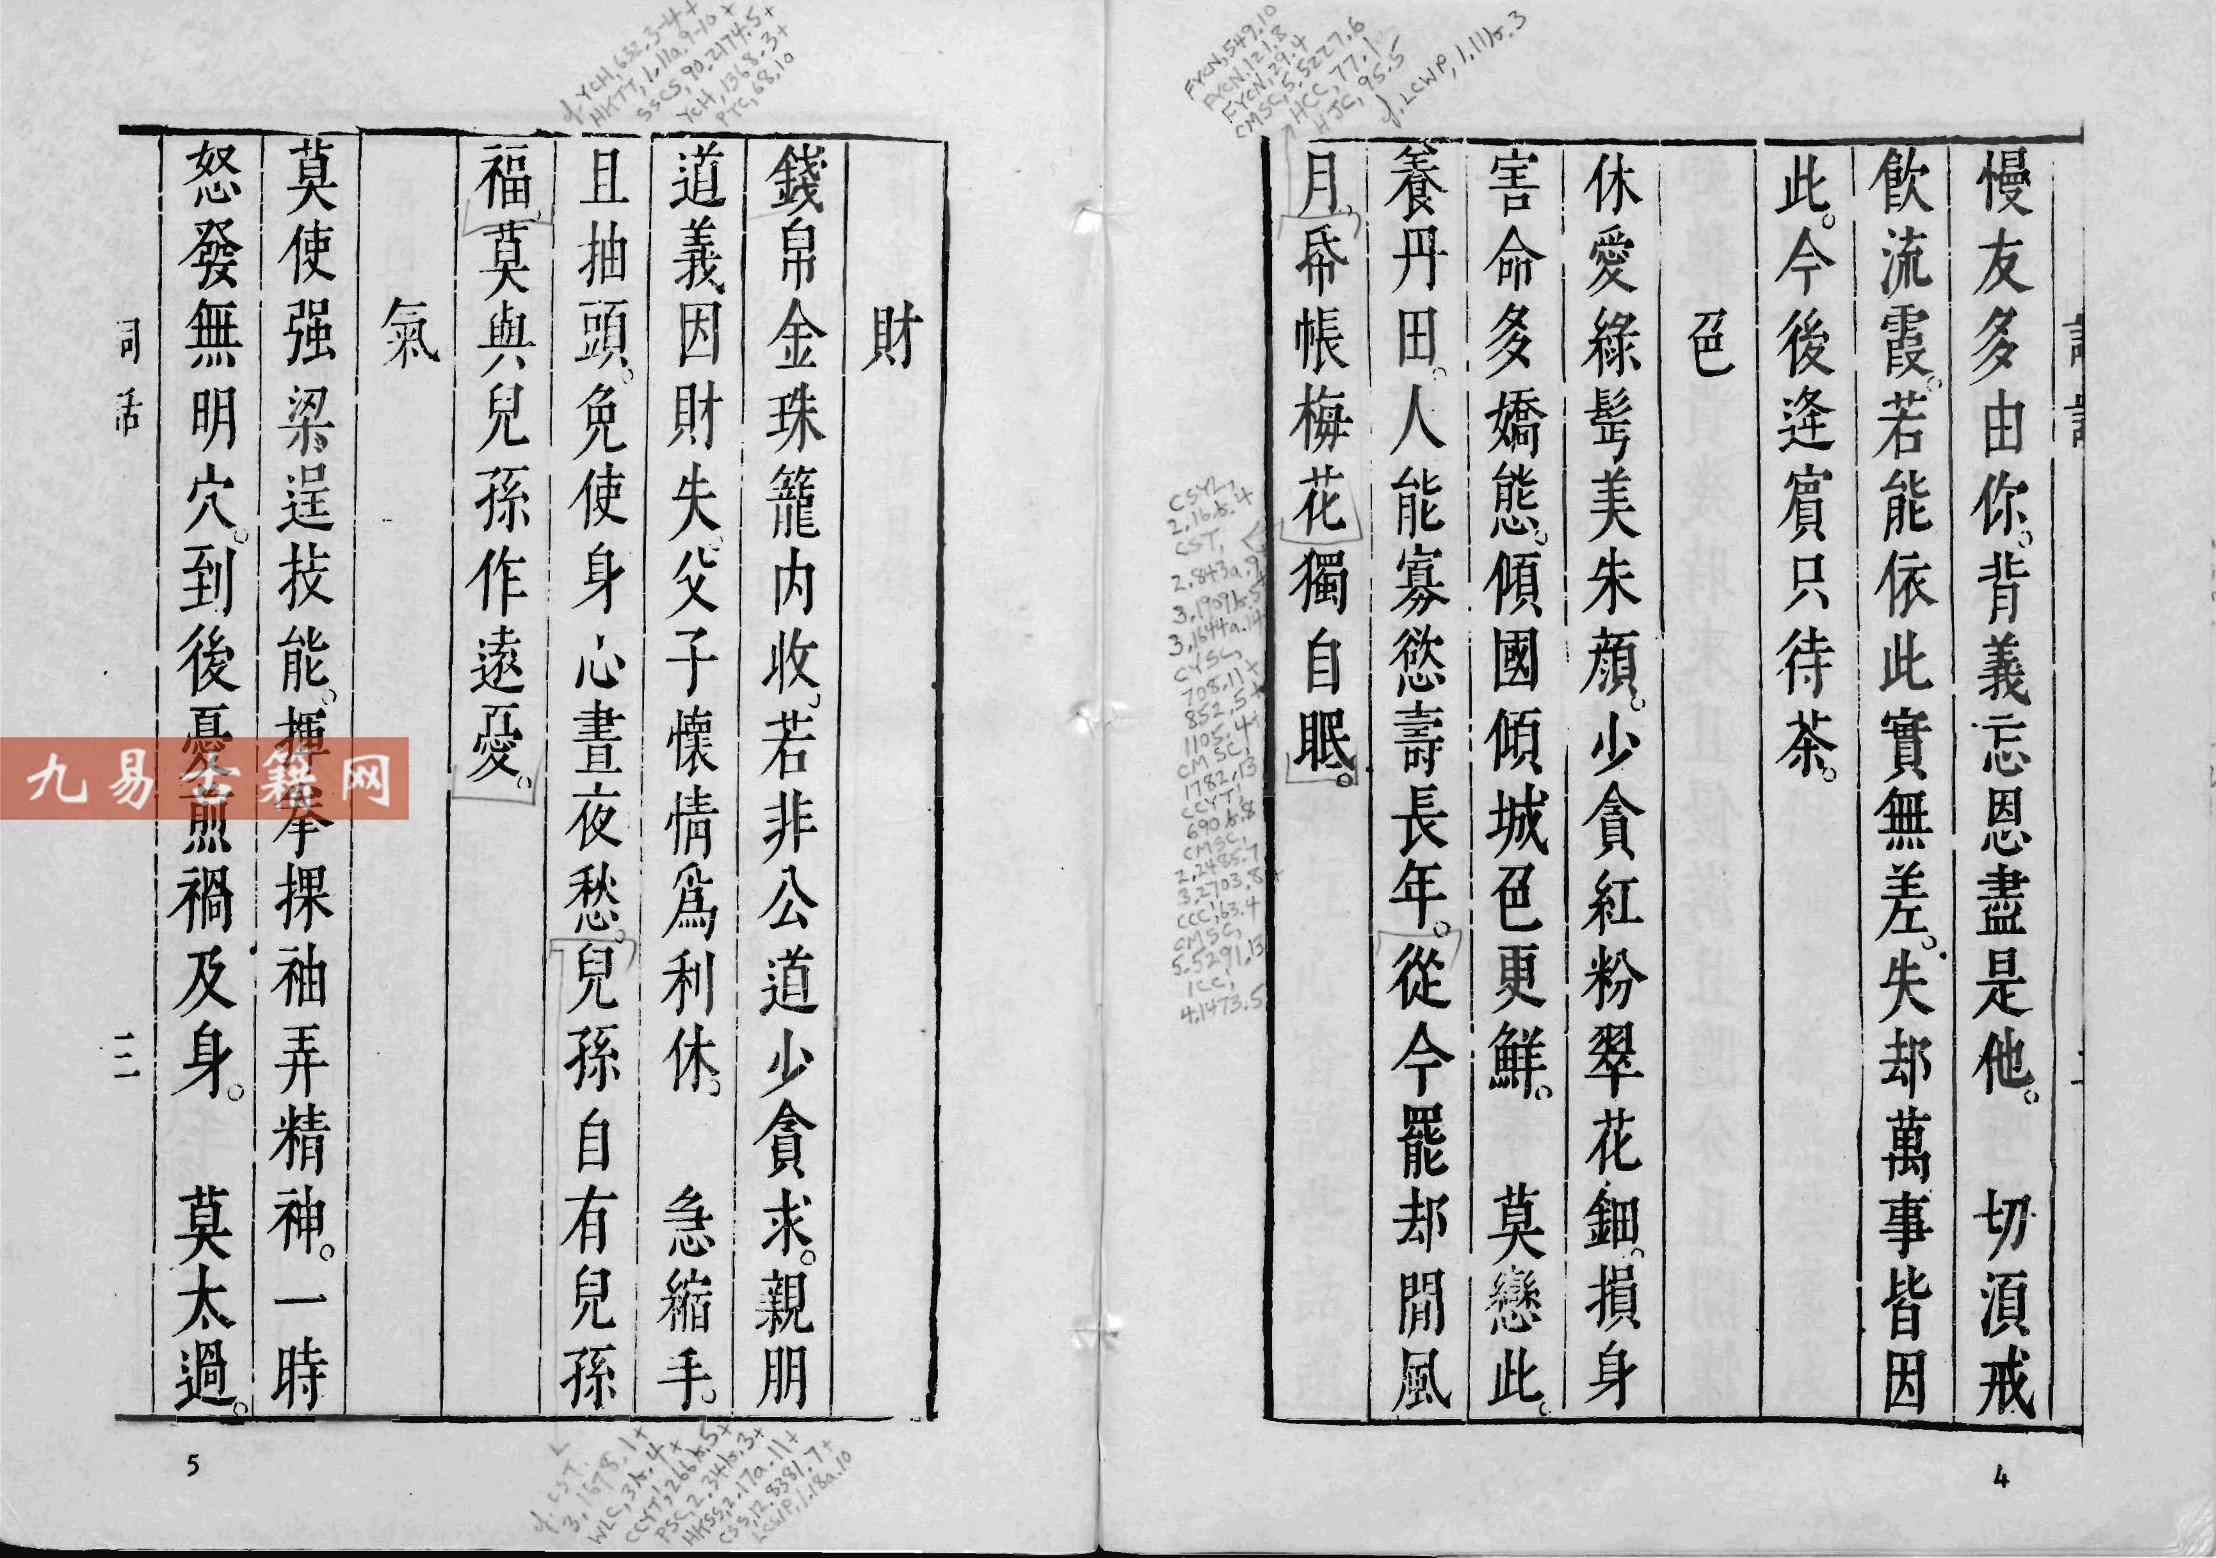 慢友多由你。背義忘恩盡是他。　切湏戒
飲流霞。若能依此實無差。失却萬事皆因
此。今後逢賓只待茶。
色
休愛綠髩美朱顔。少貪紅粉翠花鈿。損身
害命多嬌態。傾國傾城色更鮮。　莫戀此。
養丹田。人能寡慾壽長年。從今罷却閒風
月。帋帳梅花獨自眠。
財
錢帛金珠籠内收。若非公道少貪求。親朋
道義因財失。父子懷情爲利休。　急縮手。
且抽頭。免使身心晝夜愁。兒孫自有兒孫
福。莫與兒孫作遠憂。
氣
莫使强梁逞技能。揮拳捰袖弄精神。一時
怒發無明穴。到後憂煎禍及身。　莫太過。
詞話
三
4
5
九易古籍网
FYCN, 549.10
FYCN, 121.8
FYCN, 29.4
CMSC, 5.5227.6
HCC, 77.1
HJC, 95.5
cf. LCWP, 1.11b.3
CSYL,
2.16b.4
CST,
2.843a.9
3.1909b.5+
3.1644a.14+
CYSC,
708.11+
852.5+
1105.4+
CMSC,
1782.13
CCYT,
690b.8
CMSC,
2.2485.7
3.2703.8+
CCC, 63.4
CMSC,
5.5291.13
ICC,
4.1473.5
cf. YCH, 632.3-4+
HKTT, 1.11a.9-10+
SSCS, 90.2174.5+
YCH, 1368.3+
PTC, 68.10
cf. CST,
3.1678.1+
WLC, 31b.4+
CCYT, 266b.5+
PSC, 2.341b.3+
HKSS, 2.17a.11+
CSS, 12.8381.7+
LCWP, 1.18a.10